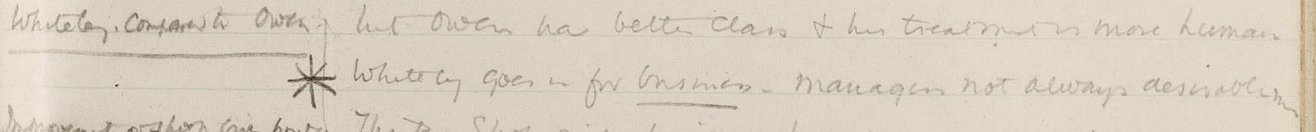 Whiteley. Compared to Owen. but Owen has better class & his treatment is more human
Whiteley goes in for business - managers not always desirable men
The Shop